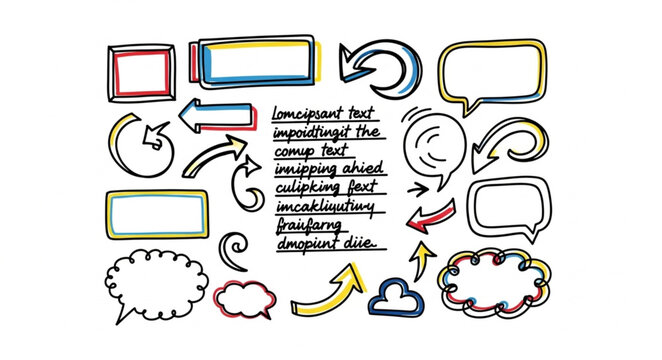 Lomcipsant text
impoidtingit the
comup text
innipping ahied
culipking fext
imcakliyutiwy
fraiifarng
dmopiint diie